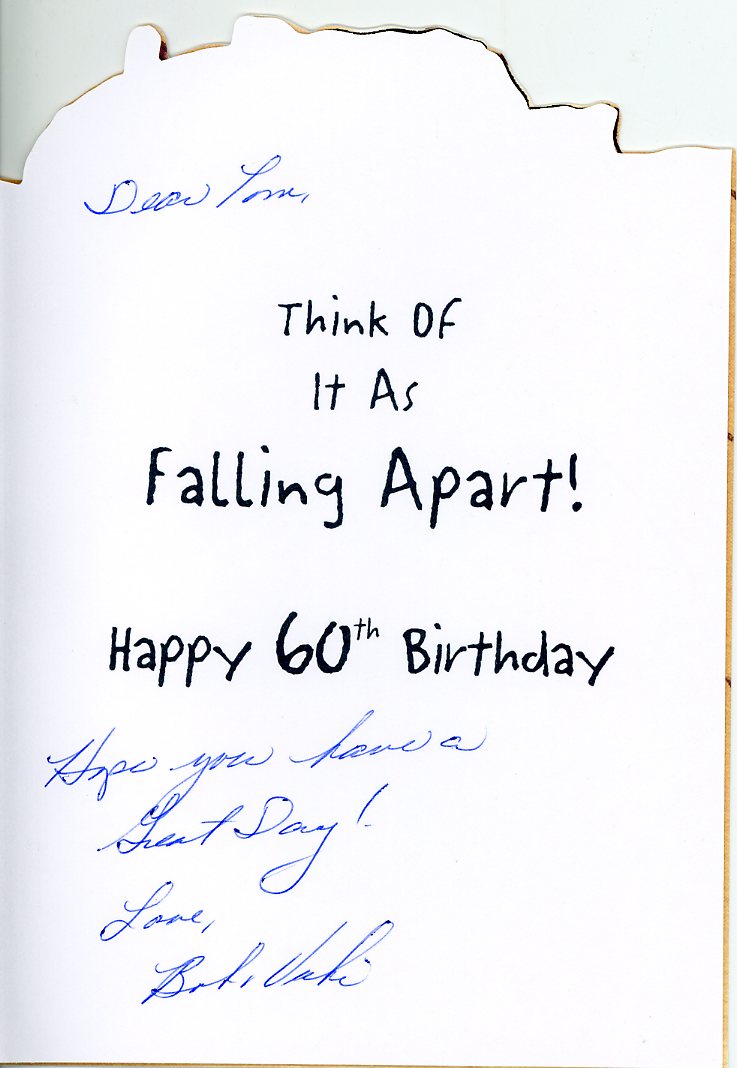 Dear Tom,
Think Of
It As
Falling Apart!
Happy 60th Birthday
Hope you have a
Great Day!
Love,
Bob, Vicki